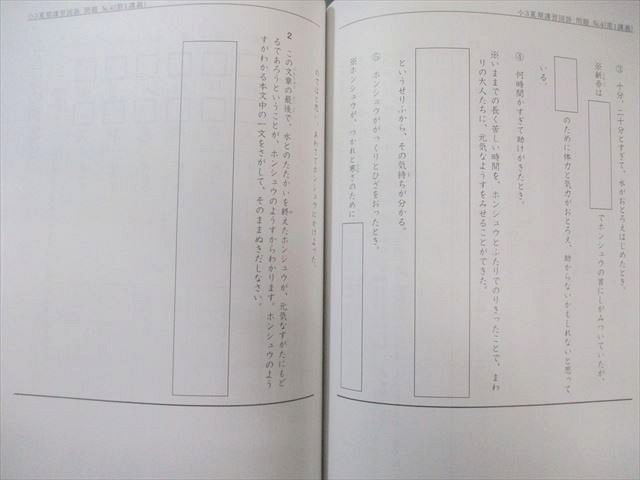 小3夏期講習国語 問題 No.4(第1講義)
③ 十分、二十分とすぎて、水がおとろえはじめたとき。
※新吉は
でホンシュウの首にしがみついていたが、
のために体力と気力がおとろえ、助からないかもしれないと思って
いる。
④ 何時間かすぎて助けがきたとき。
※いままでの長く苦しい時間を、ホンシュウとふたりでのりきったことで、まわ
りの大人たちに、元気なようすをみせることができた。
というせりふから、その気持ちが分かる。
⑤ ホンシュウががっくりとひざをおったとき。
※ホンシュウが、つかれと寒さのために
小3夏期講習国語 問題 No.4(第1講義)
のではと思い、あわててホンシュウにかけよった。
2 この文章の最後で、水とのたたかいを終えたホンシュウが、元気なすがたにもど
るであろうということが、ホンシュウのようすからわかります。ホンシュウのよう
すがわかる本文中の一文をさがして、そのままぬきだしなさい。